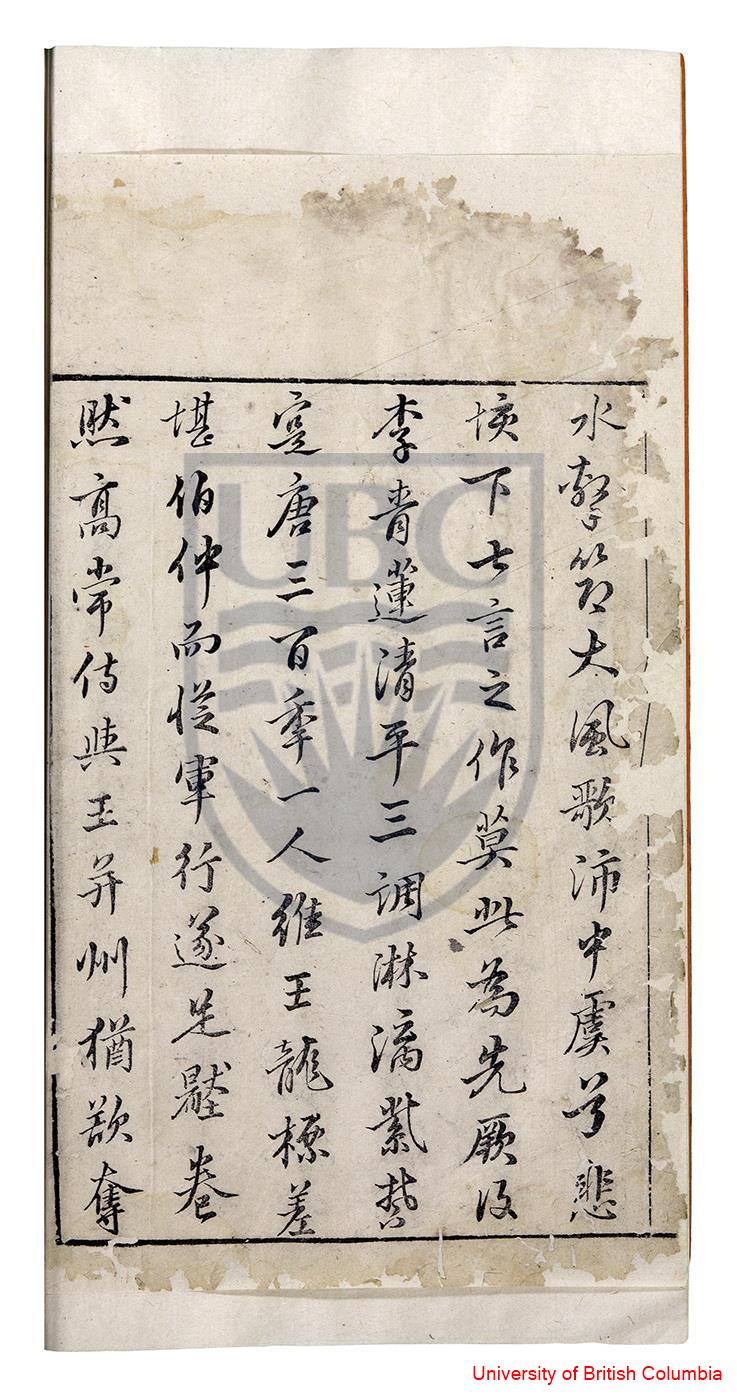 水擊筑大風歌沛中虞兮悲
垓下七言之作莫此為先厥後
李青蓮清平三調淋漓
寔唐三百季一人維王龍標差
堪伯仲而從軍行遂足壓卷
然高常侍與王并州猶欲奪
UBC
University of British Columbia